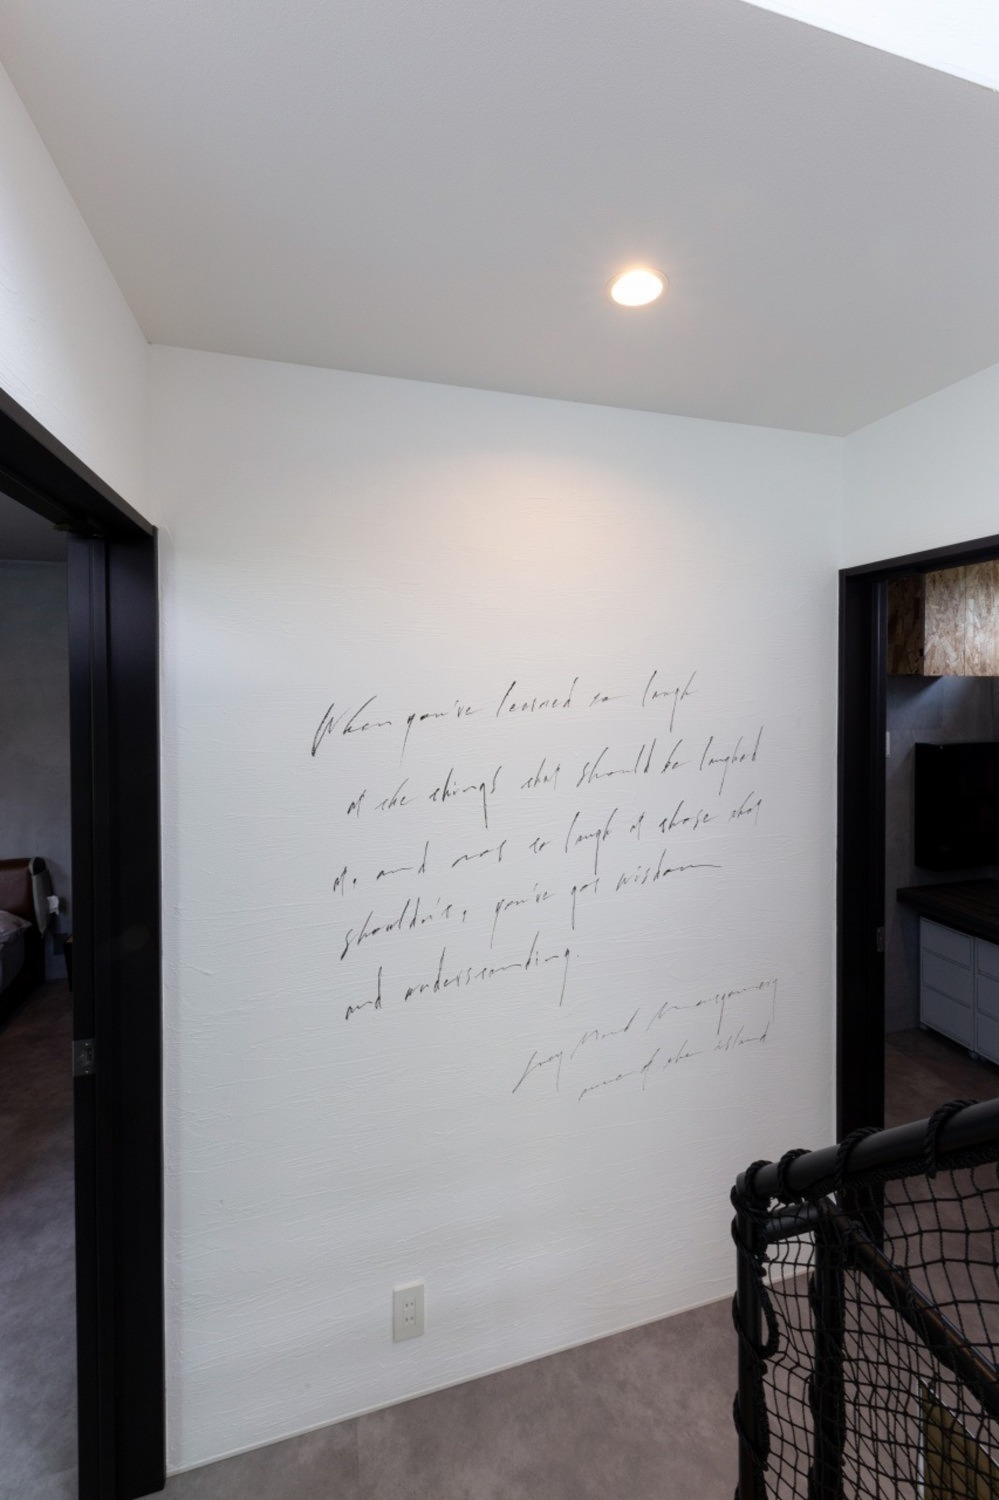 When you've learned to laugh
at the things that should be laughed
at, and not to laugh at those that
shouldn't, you've got wisdom
and understanding.
Lucy Maud Montgomery
of the island